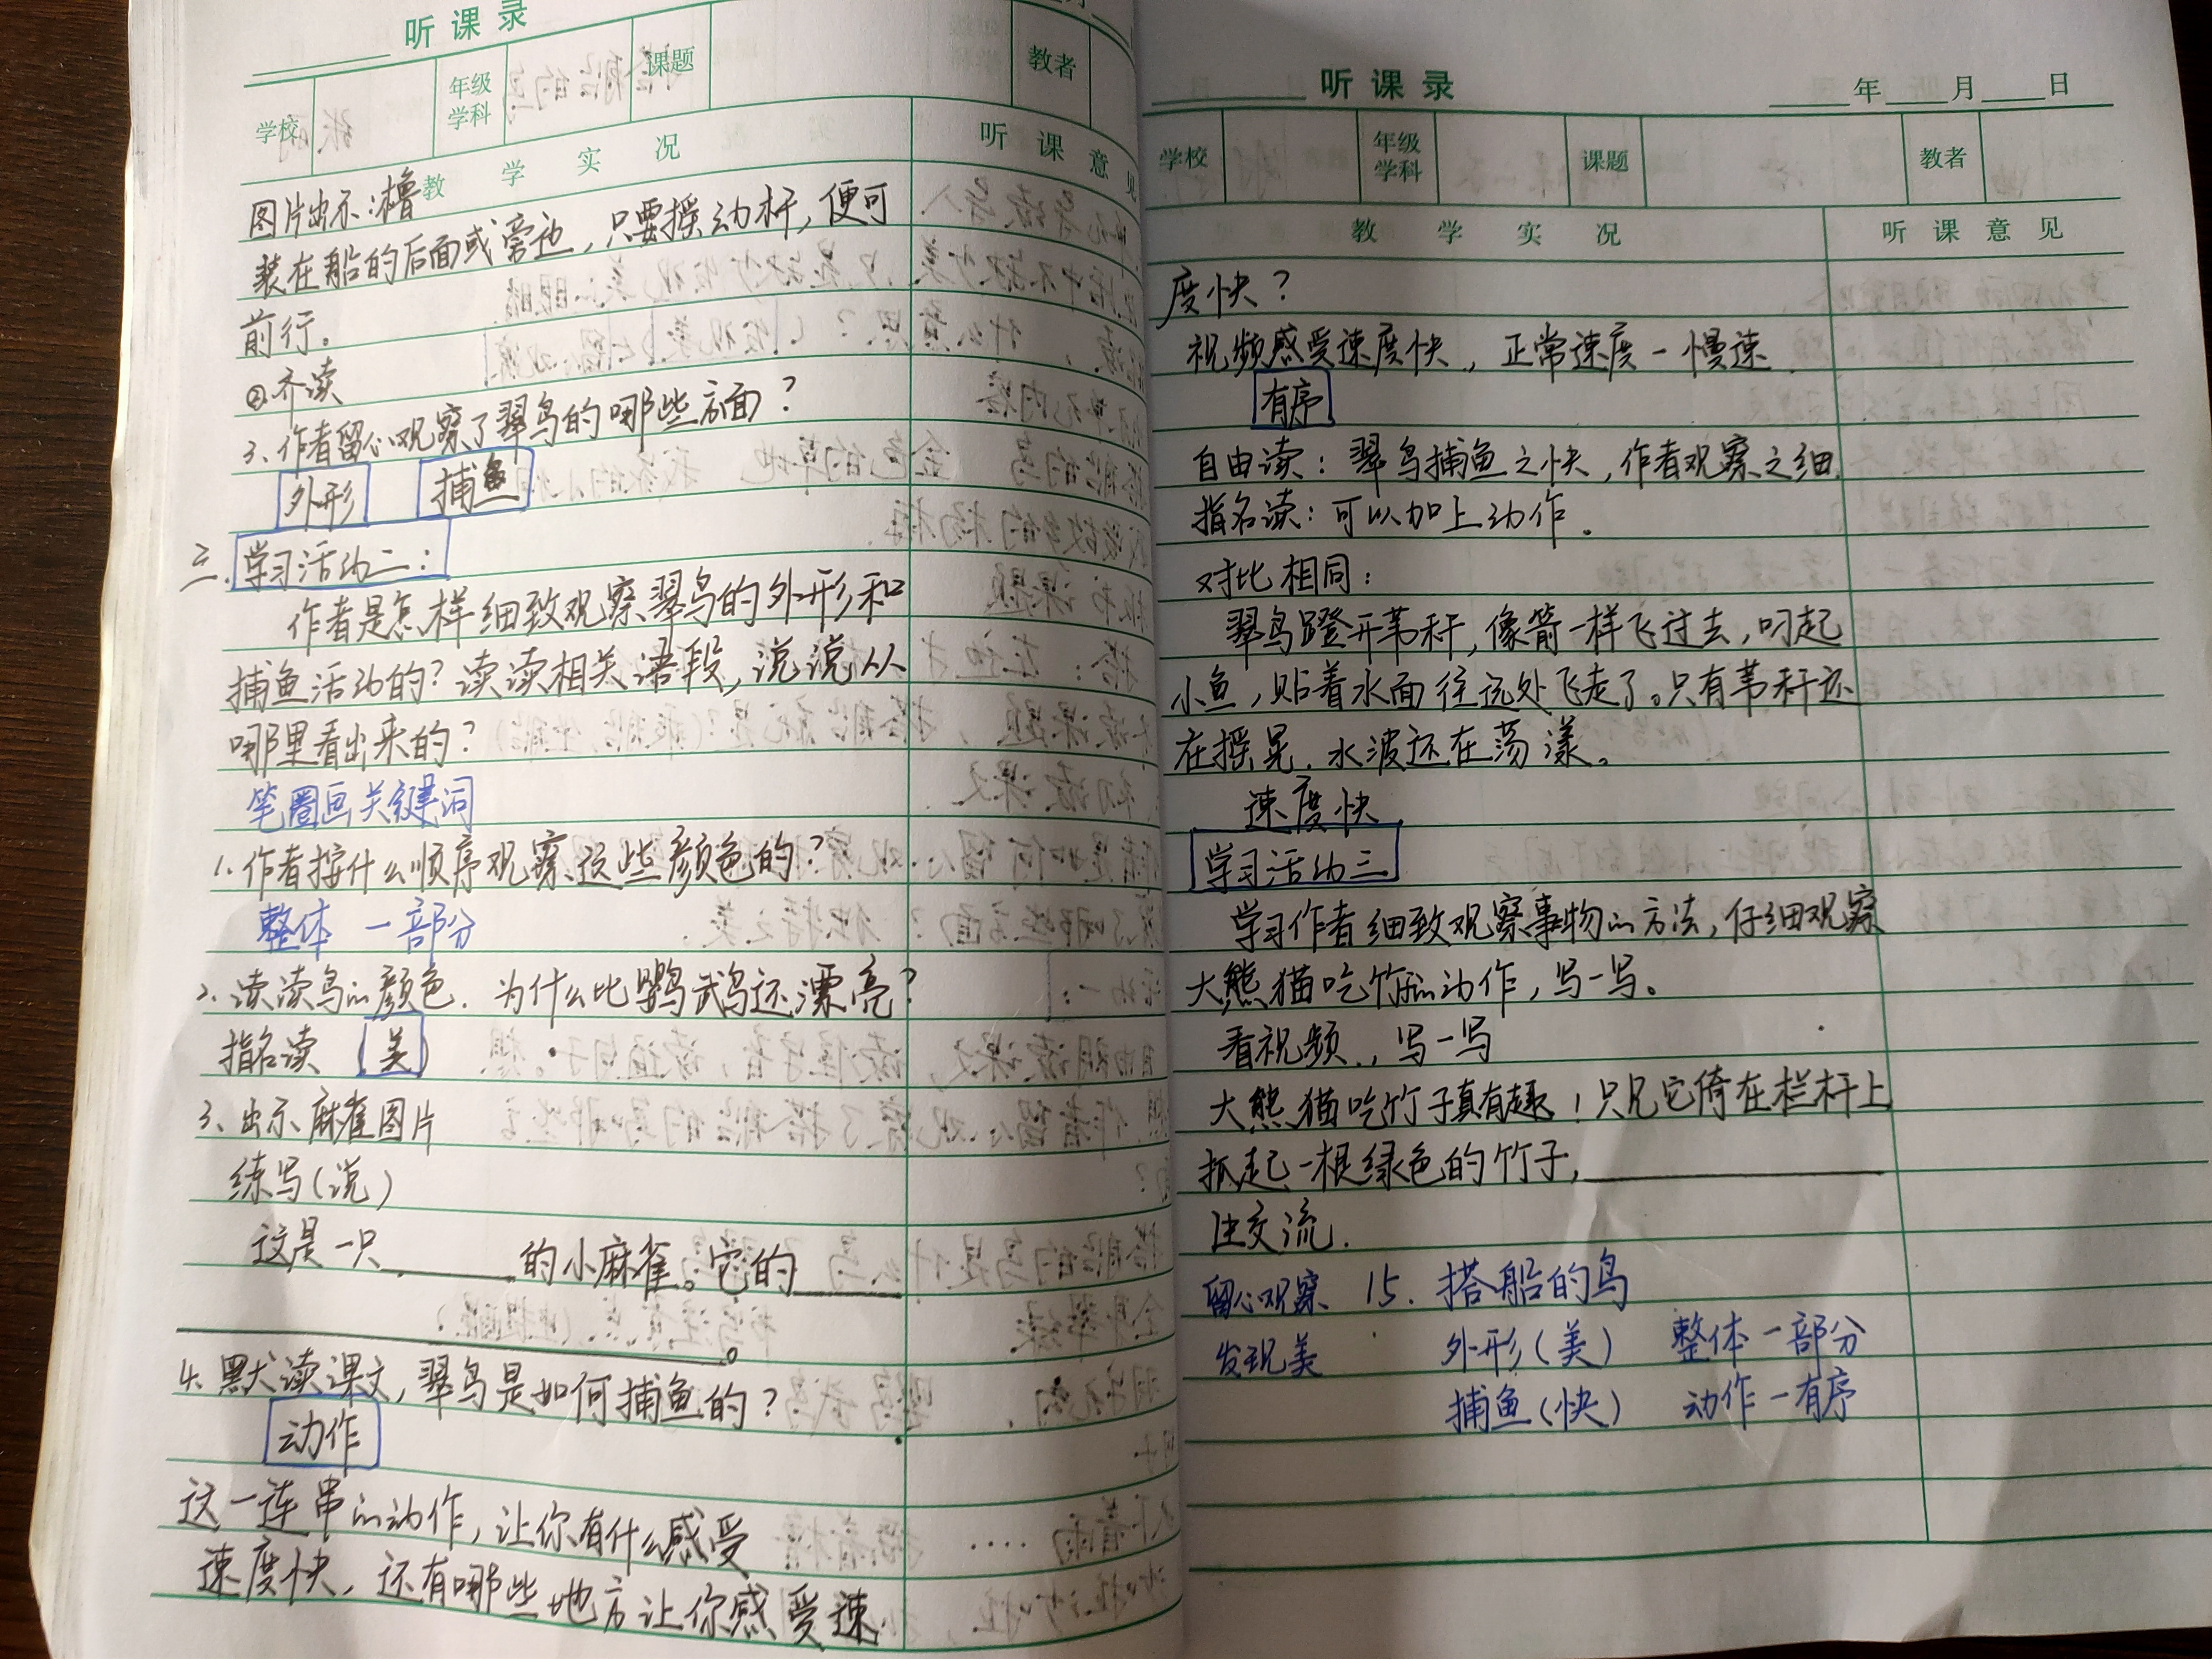 听课录
学校 年级学科 课题 教者
教学实况 听课意见
图片出示:橹
装在船的后面或旁边,只要摇动杆,便可
前行。
②齐读
3、作者留心观察了翠鸟的哪些方面?
外形 捕鱼
三.学习活动二:
作者是怎样细致观察翠鸟的外形和
捕鱼活动的?读读相关语段,说说从
哪里看出来的?
笔圈画关键词
1.作者按什么顺序观察这些颜色的?
整体—部分
2.读读鸟的颜色.为什么比鹦鹉还漂亮?
指名读 美
3、出示麻雀图片
练写(说)
这是一只____的小麻雀。它的____
____。
4.默读课文,翠鸟是如何捕鱼的?
动作
这一连串的动作,让你有什么感受
速度快,还有哪些地方让你感受速
听课录 年 月 日
学校 年级学科 课题 教者
教学实况 听课意见
度快?
视频感受速度快,正常速度—慢速
有序
自由读:翠鸟捕鱼之快,作者观察之细.
指名读:可以加上动作.
对比相同:
翠鸟蹬开苇秆,像箭一样飞过去,叼起
小鱼,贴着水面往远处飞走了。只有苇秆还
在摇晃.水波还在荡漾。
速度快
学习活动三
学习作者细致观察事物的方法,仔细观察
大熊猫吃竹子的动作,写一写。
看视频,写一写
大熊猫吃竹子真有趣!只见它倚在栏杆上
抓起一根绿色的竹子,____
生交流.
留心观察 15.搭船的鸟
发现美 外形(美) 整体—部分
捕鱼(快) 动作—有序